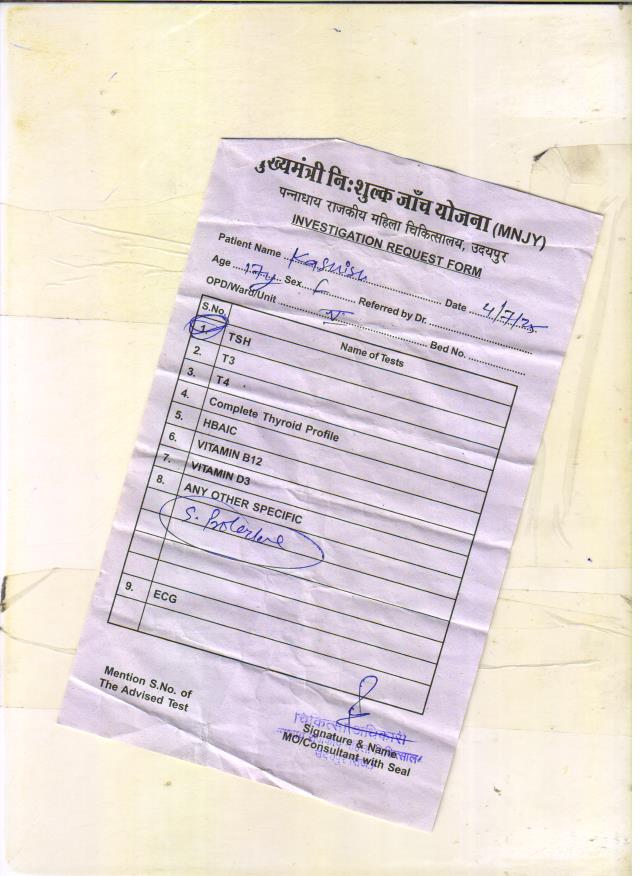 मुख्यमंत्री नि:शुल्क जाँच योजना (MNJY)
पन्नाधाय राजकीय महिला चिकित्सालय, उदयपुर
INVESTIGATION REQUEST FORM
Patient Name Kashish Date 4/7/25
Age 17y Sex F Referred by Dr.
OPD/Ward/Unit V Bed No.
S.No. Name of Tests
1. TSH
2. T3
3. T4
4. Complete Thyroid Profile
5. HBAIC
6. VITAMIN B12
7. VITAMIN D3
8. ANY OTHER SPECIFIC
S.
9. ECG
Mention S.No. of
The Advised Test
चिकित्सा अधिकारी
Signature & Name
MO/Consultant with Seal